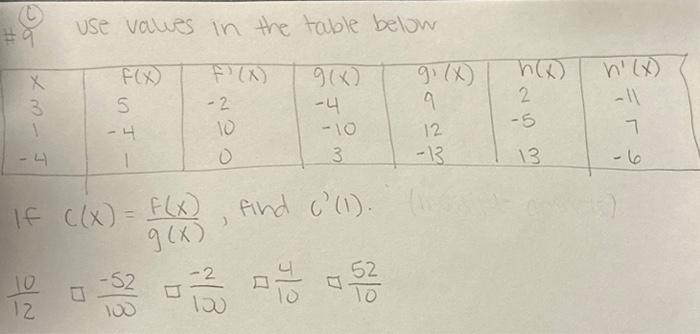 #9 c use values in the table below
x f(x) f'(x) g(x) g'(x) h(x) h'(x)
3 5 -2 -4 9 2 -11
1 -4 10 -10 12 -5 7
-4 1 0 3 -13 13 -6
If c(x) = f(x)/g(x), find c'(1).
10/12 □ -52/100 □ -2/100 □ 4/10 □ 52/10